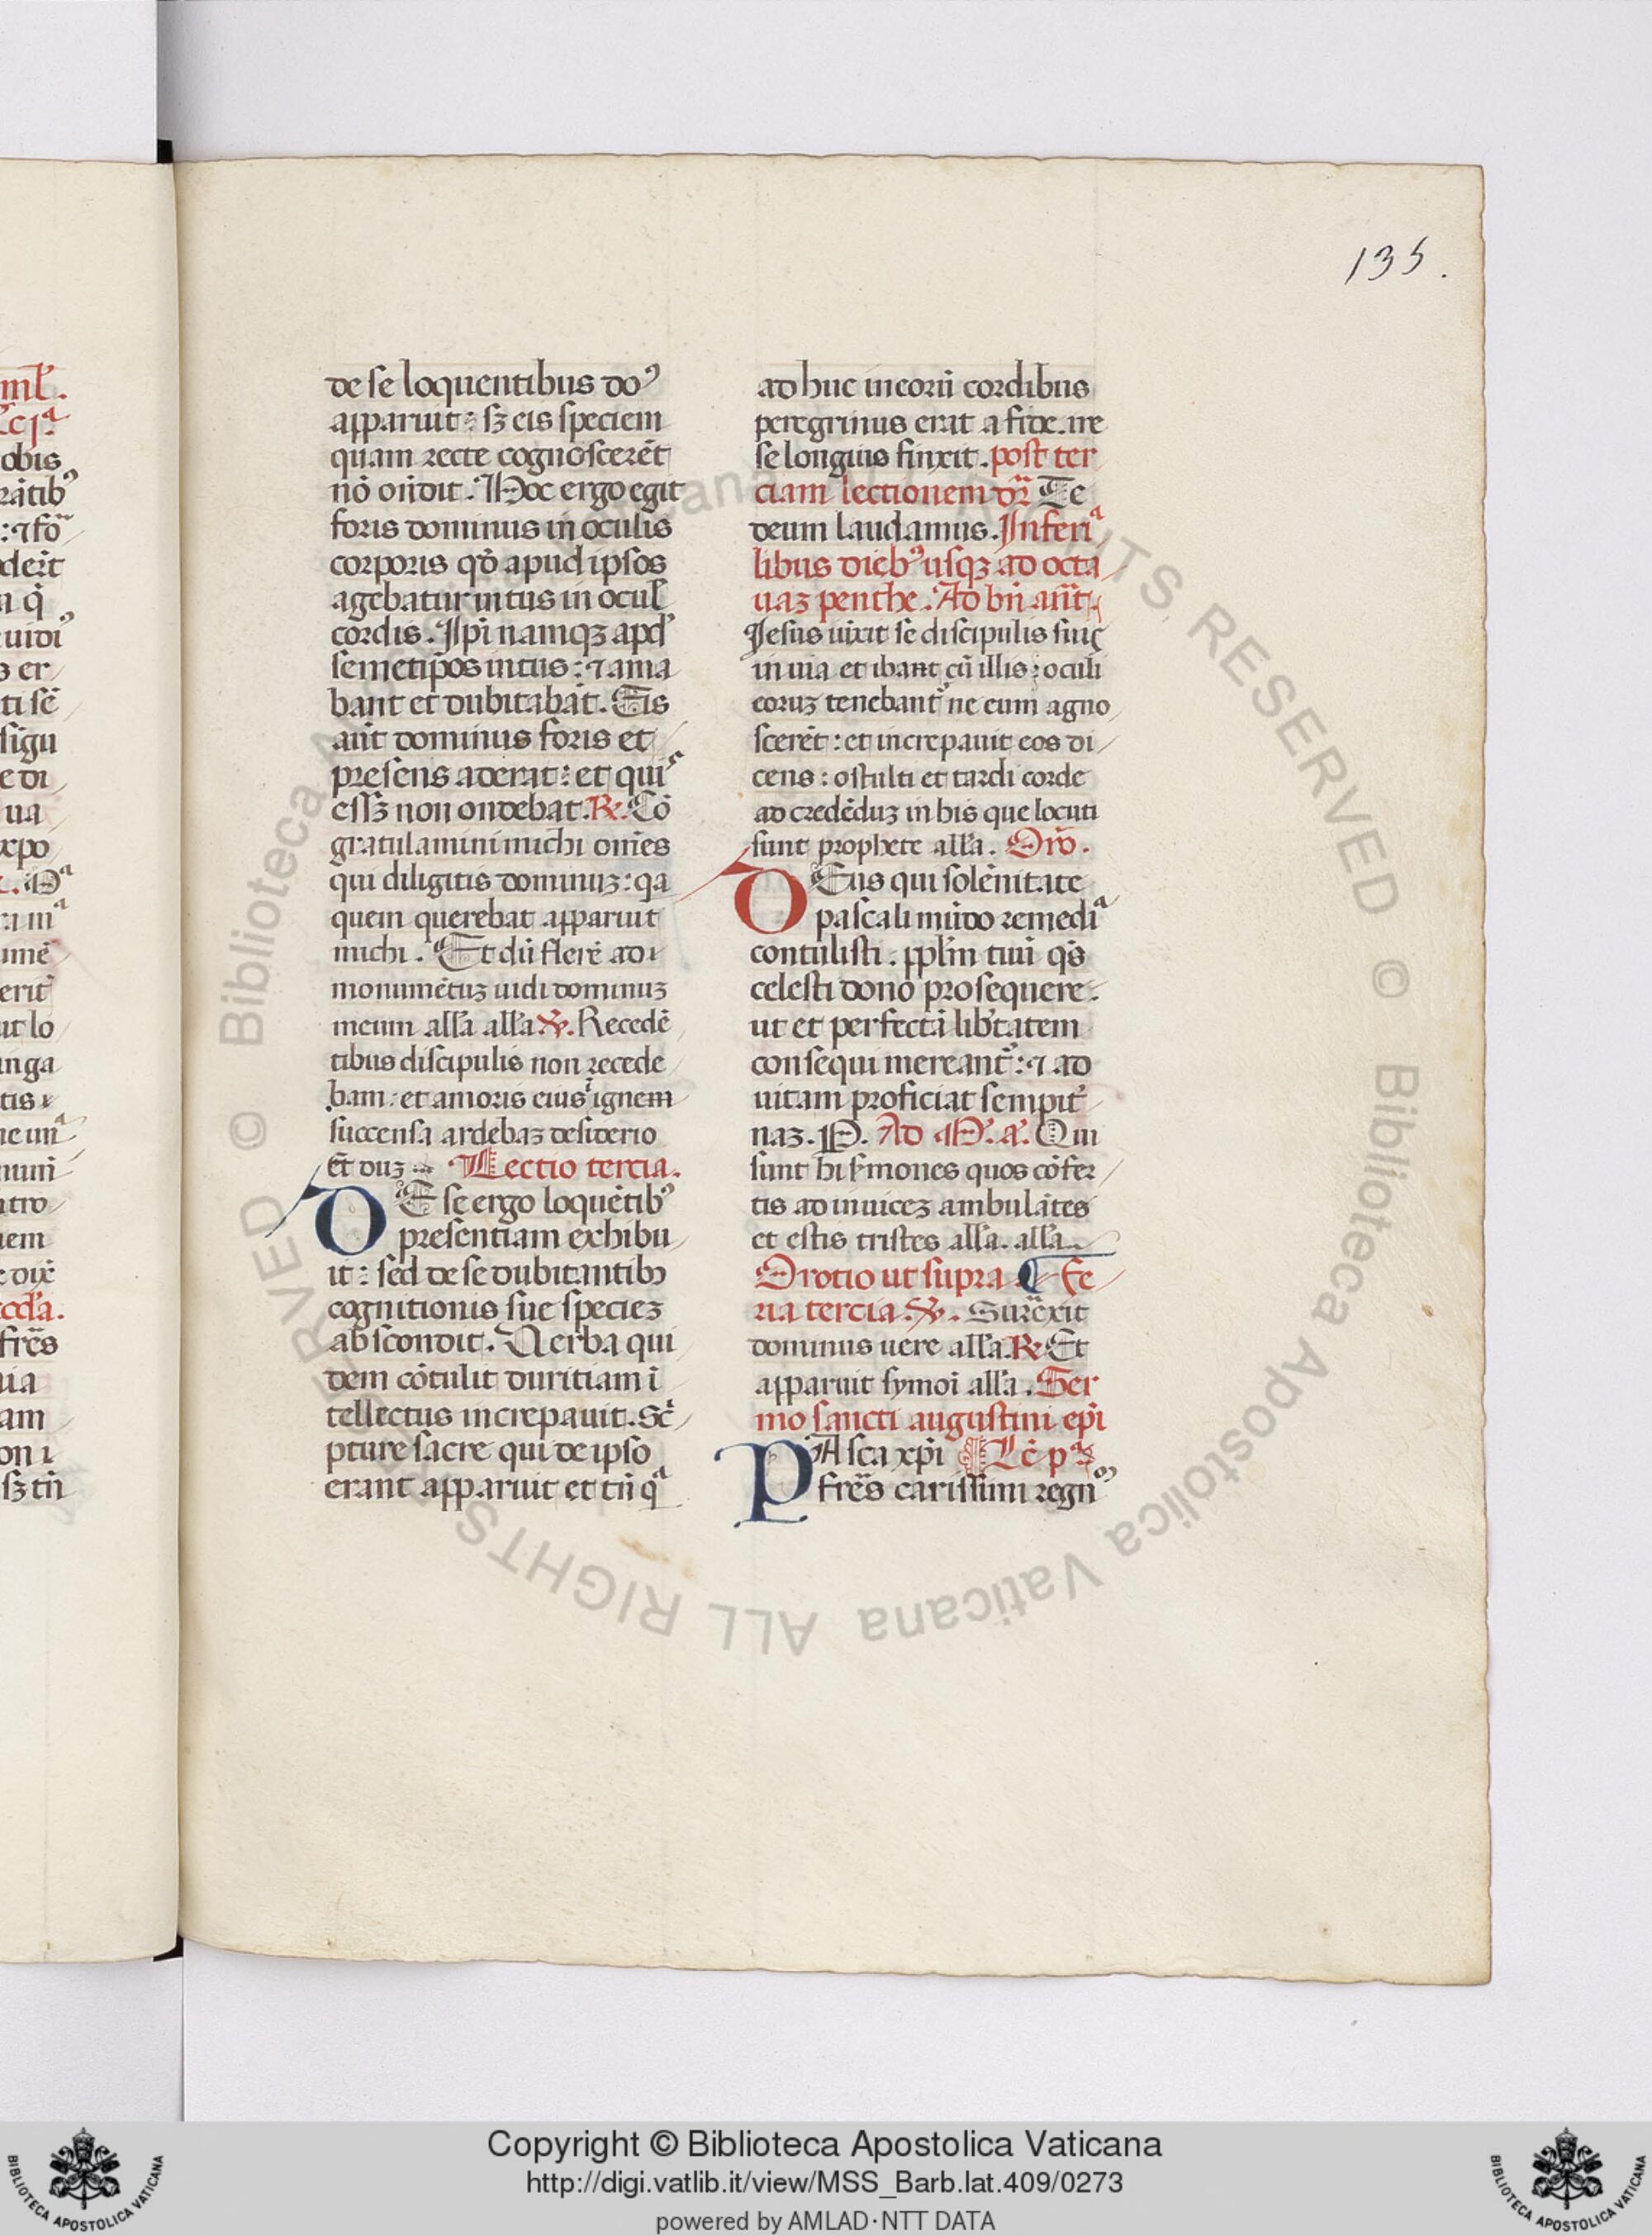 135.
de se loquentibus doꝰ
apparuit: sꝫ eis speciem
quam recte cognoscerēt
nō oñdit. Hoc ergo egit
foris dominus in oculis
corporis qd̓ apud ipsos
agebatur intus in ocul̓
cordis. Ip̄i namqꝫ apđ
semetip̄os intus: ⁊ ama
bant et dubitabāt. Eis
aūt dominus foris et
presens aderat: et quiˢ
essꝫ non ondebat. ℞. Cō
gratulamini michi om̄es
qui diligitis dominuꝫ: qͣa
quem querebat apparuit
michi. Et dū flerē ad
monumētuꝫ uidi dominuꝫ
meum all'a all'a ℣. Recedē
tibus discipulis non recede
bam: et amoris eius ignem
succensa ardebaꝫ desiderio
Et duꝫ Lectio tercia.
DE se ergo loquētibꝰ
presentiam exhibu
it: sed de se dubitantibꝫ
cognitionis sue specieꝫ
abscondit. Verba qui
dem cōtulit duritiam ī
tellectus increpauit. Scͥ
pture sacre que de ipso
erant apparuit et tñ qͣ
ad huc in corū cordibus
peregrinus erat a fide. ire
se longius finxit. post ter
ciam lectionem dr̄ Te
deum laudamus. In feriͣ
libus diebꝰ usqꝫ ad octa
uaꝫ penthe. Ad bñ añt
Jesus iūxit se discipulis suis
in uia et ibant cū illis: oculi
eoruꝫ tenebant᷑ ne eum agno
scerēt: et increpauit eos di
cens: o stulti et tardi corde
ad credēduꝫ in his que locuti
sunt prophete all'a. Orō.
DEus qui solēnitate
pascali mūdo remediͣ
contulisti. pplm̄ tuū qs̄
celesti dono prosequere:
ut et perfectā lib̓tatem
consequi mereant᷑: ⁊ ad
uitam proficiat sempit̓
naꝫ. P. Ad M. a. Qui
sunt hi s̓mones quos cōfer
tis ad inuiceꝫ ambulātes
et estis tristes all'a. all'a.
Orotio ut supra ¶ Fe
ria tercia. ℣. Surrexit
dominus uere all'a. ℞. Et
apparuit symoī all'a. Ser
mo sancti augustini ep̄i
PAsca xp̄i Lc̄ pͣ
fr̄es carissimi regnͫ
Copyright © Biblioteca Apostolica Vaticana
http://digi.vatlib.it/view/MSS_Barb.lat.409/0273
powered by AMLAD·NTT DATA
BIBLIOTECA APOSTOLICA VATICANA
BIBLIOTECA APOSTOLICA VATICANA
© Biblioteca Apostolica Vaticana ALL RIGHTS RESERVED © Biblioteca Apostolica Vaticana ALL RIGHTS RESERVED